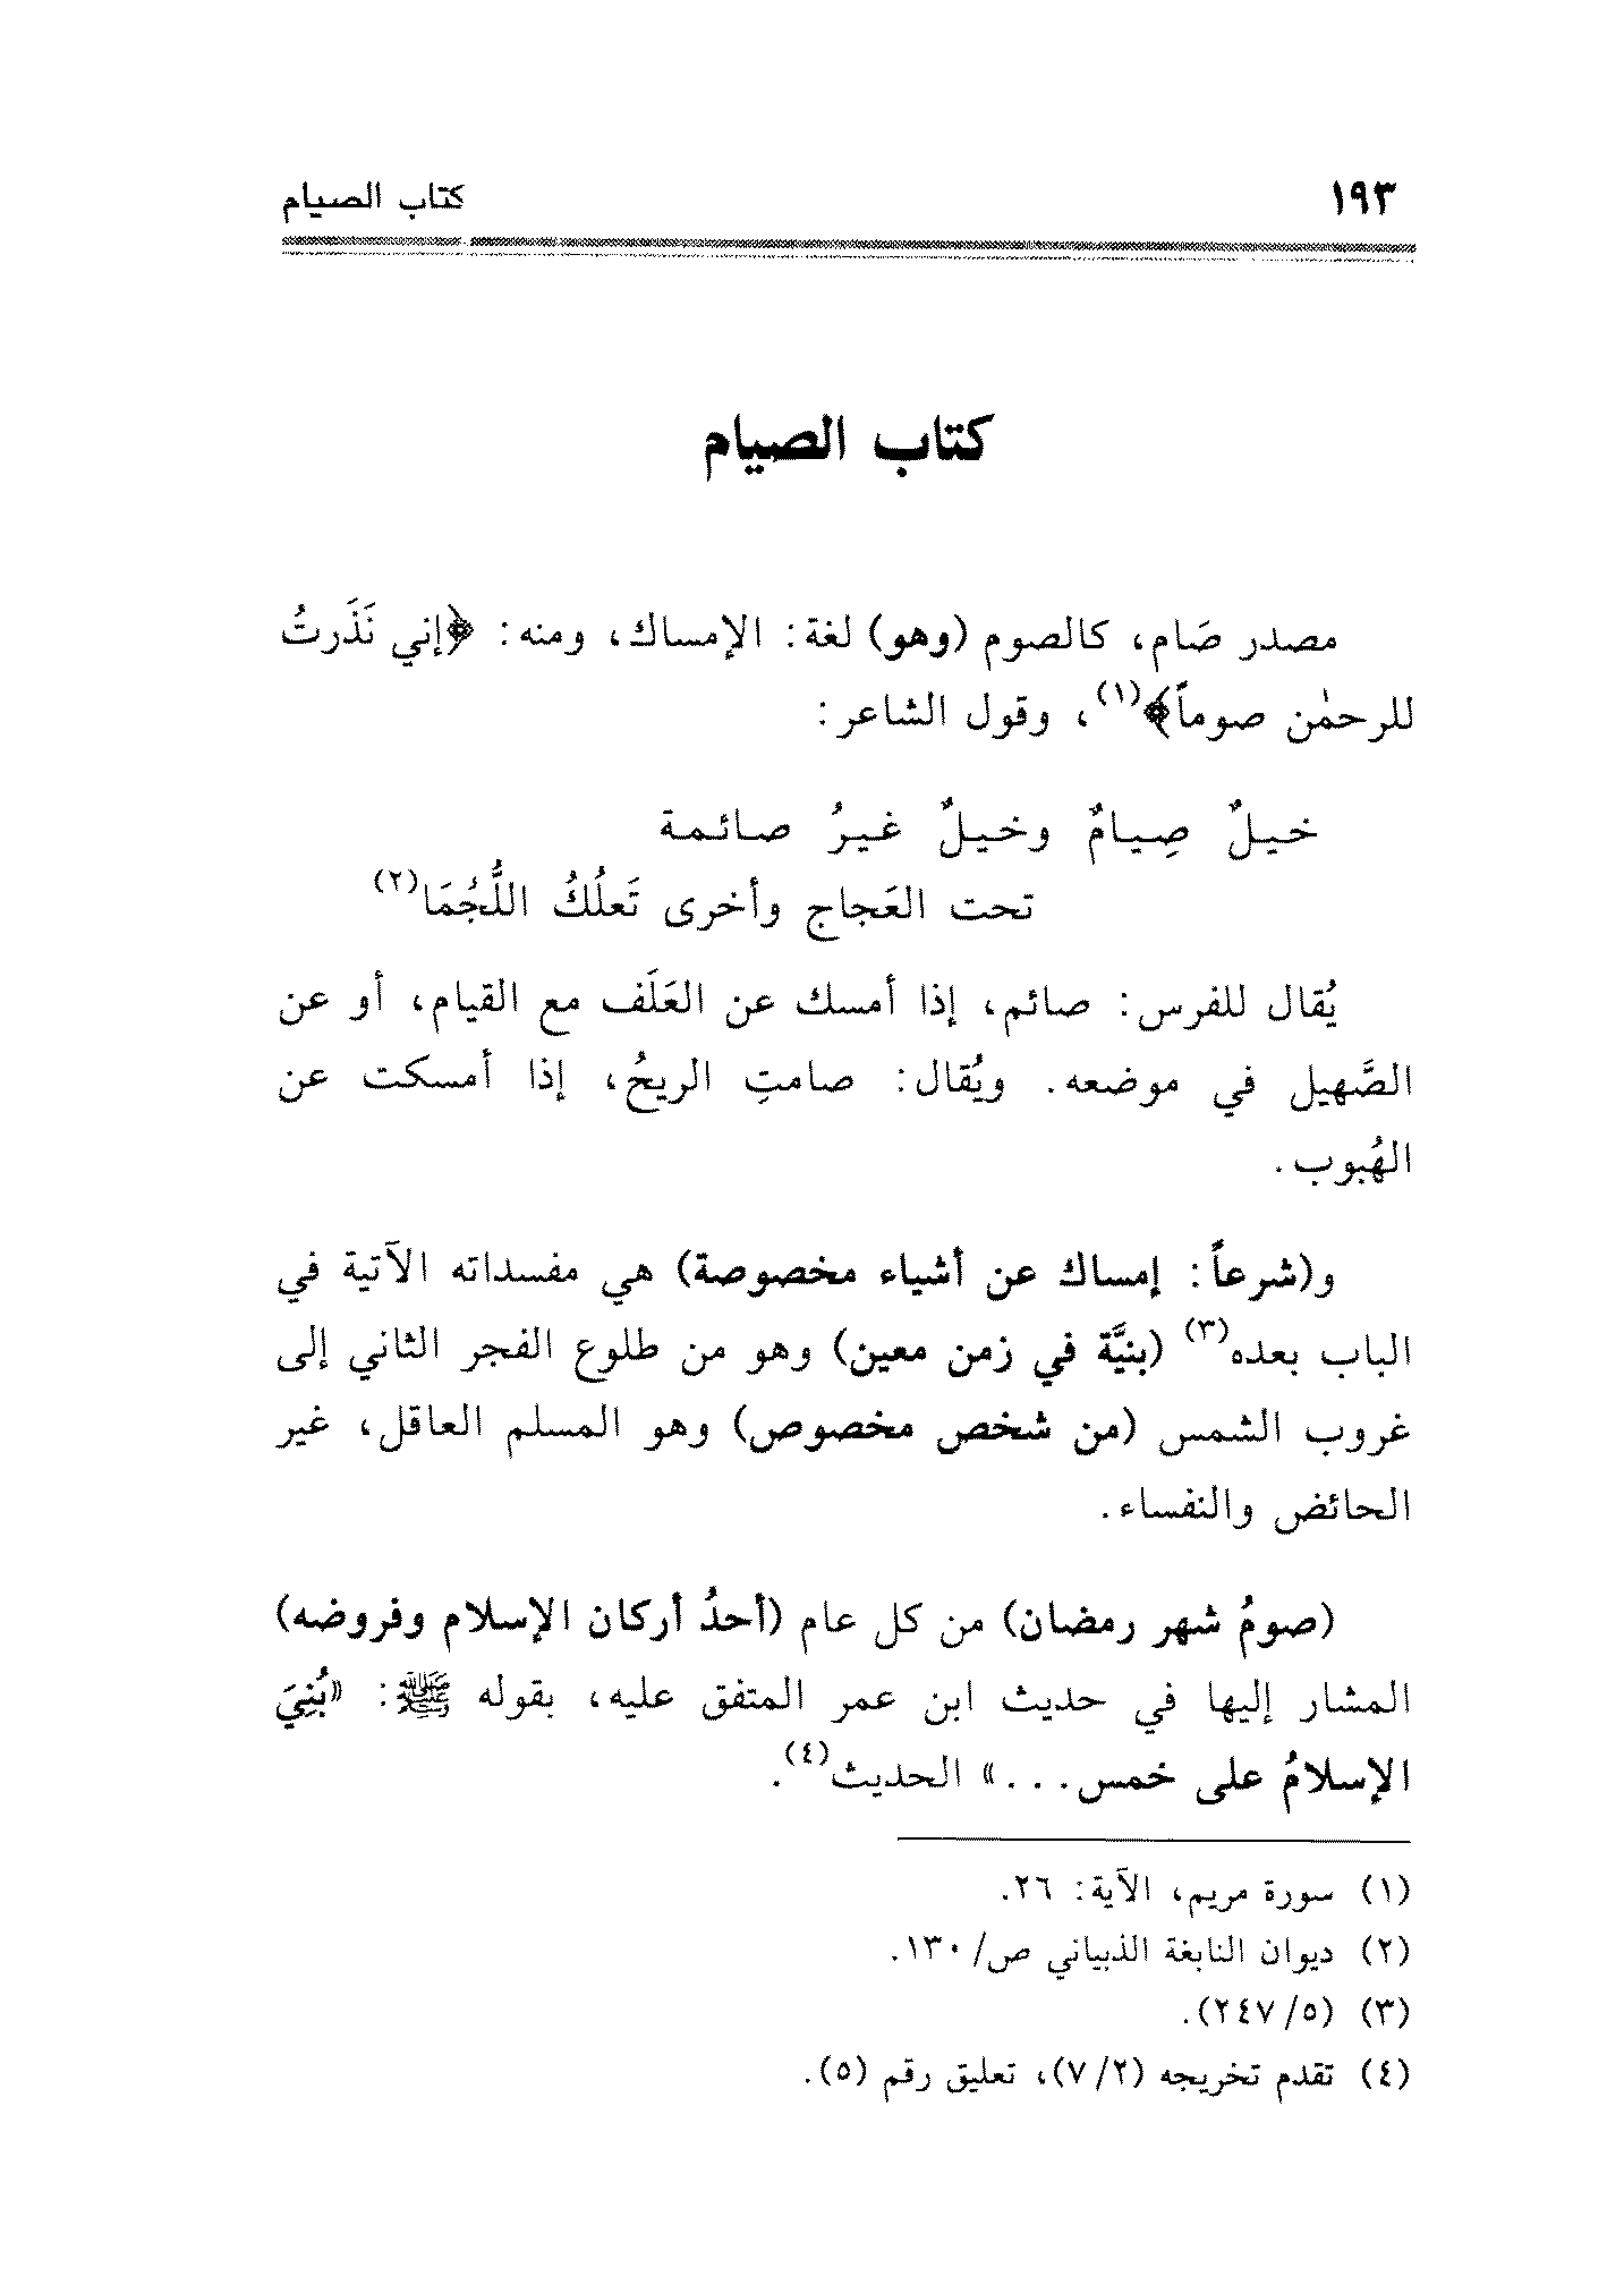 ١٩٣
كتاب الصيام
كتاب الصيام
مصدر صَام، كالصوم (وهو) لغة: الإمساك، ومنه: ﴿إني نَذَرتُ
للرحمٰن صوماً﴾(١)، وقول الشاعر:
خيلٌ صِيامٌ وخيلٌ غيرُ صائمة
تحت العَجاج وأخرى تَعلُكُ اللُّجُمَا(٢)
يُقال للفرس: صائم، إذا أمسك عن العَلَف مع القيام، أو عن
الصَّهيل في موضعه. ويُقال: صامتِ الريحُ، إذا أمسكت عن
الهُبوب.
و(شرعاً: إمساك عن أشياء مخصوصة) هي مفسداته الآتية في
الباب بعده(٣) (بنيَّة في زمن معين) وهو من طلوع الفجر الثاني إلى
غروب الشمس (من شخص مخصوص) وهو المسلم العاقل، غير
الحائض والنفساء.
(صومُ شهر رمضان) من كل عام (أحدُ أركان الإسلام وفروضه)
المشار إليها في حديث ابن عمر المتفق عليه، بقوله ﷺ: «بُنِيَ
الإسلامُ على خمس...» الحديث(٤).
(١) سورة مريم، الآية: ٢٦.
(٢) ديوان النابغة الذبياني ص/١٣٠.
(٣) (٥/٢٤٧).
(٤) تقدم تخريجه (٧/٢)، تعليق رقم (٥).